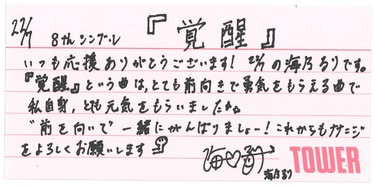 22/7 8thシングル 『覚醒』
いつも応援ありがとうございます！ 22/7の海乃るりです。
『覚醒』という曲は、とても前向きで勇気をもらえる曲で
私自身、とても元気をもらいました。
"前を向いて" 一緒にがんばりましょー！これからもナナニジ
をよろしくお願いします
TOWER
海乃るり